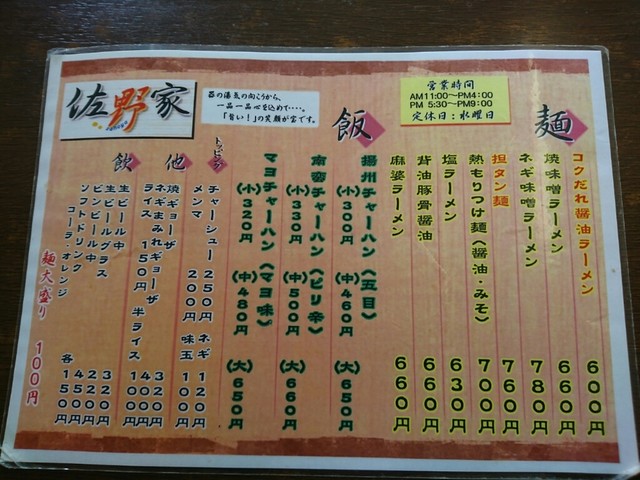 佐野家
器の湯気の向こうから、
一品一品心を込めて‥‥。
「旨い！」の笑顔が宝です。
営業時間
AM11:00〜PM4:00
PM 5:30〜PM9:00
定休日：水曜日
麺
コクだれ醤油ラーメン 600円
焼味噌ラーメン 660円
ネギ味噌ラーメン 780円
担タン麺 760円
熱もりつけ麺（醤油・みそ） 700円
塩ラーメン 630円
背油豚骨醤油 660円
麻婆ラーメン 660円
飯
揚州チャーハン（五目）
（小）300円 （中）460円 （大）650円
南蛮チャーハン（ピリ辛）
（小）330円 （中）500円 （大）660円
マヨチャーハン（マヨ味）
（小）320円 （中）480円 （大）650円
トッピング
チャーシュー 250円 ネギ 120円
メンマ 200円 味玉 100円
他
焼ギョーザ 320円
ネギまみれギョーザ 400円
ライス 150円 半ライス 100円
飲
生ビール中
生ビールグラス 320円
ビンビール中 220円
ソフトドリンク 450円
コーラ・オレンジ 各150円
麺大盛り 100円